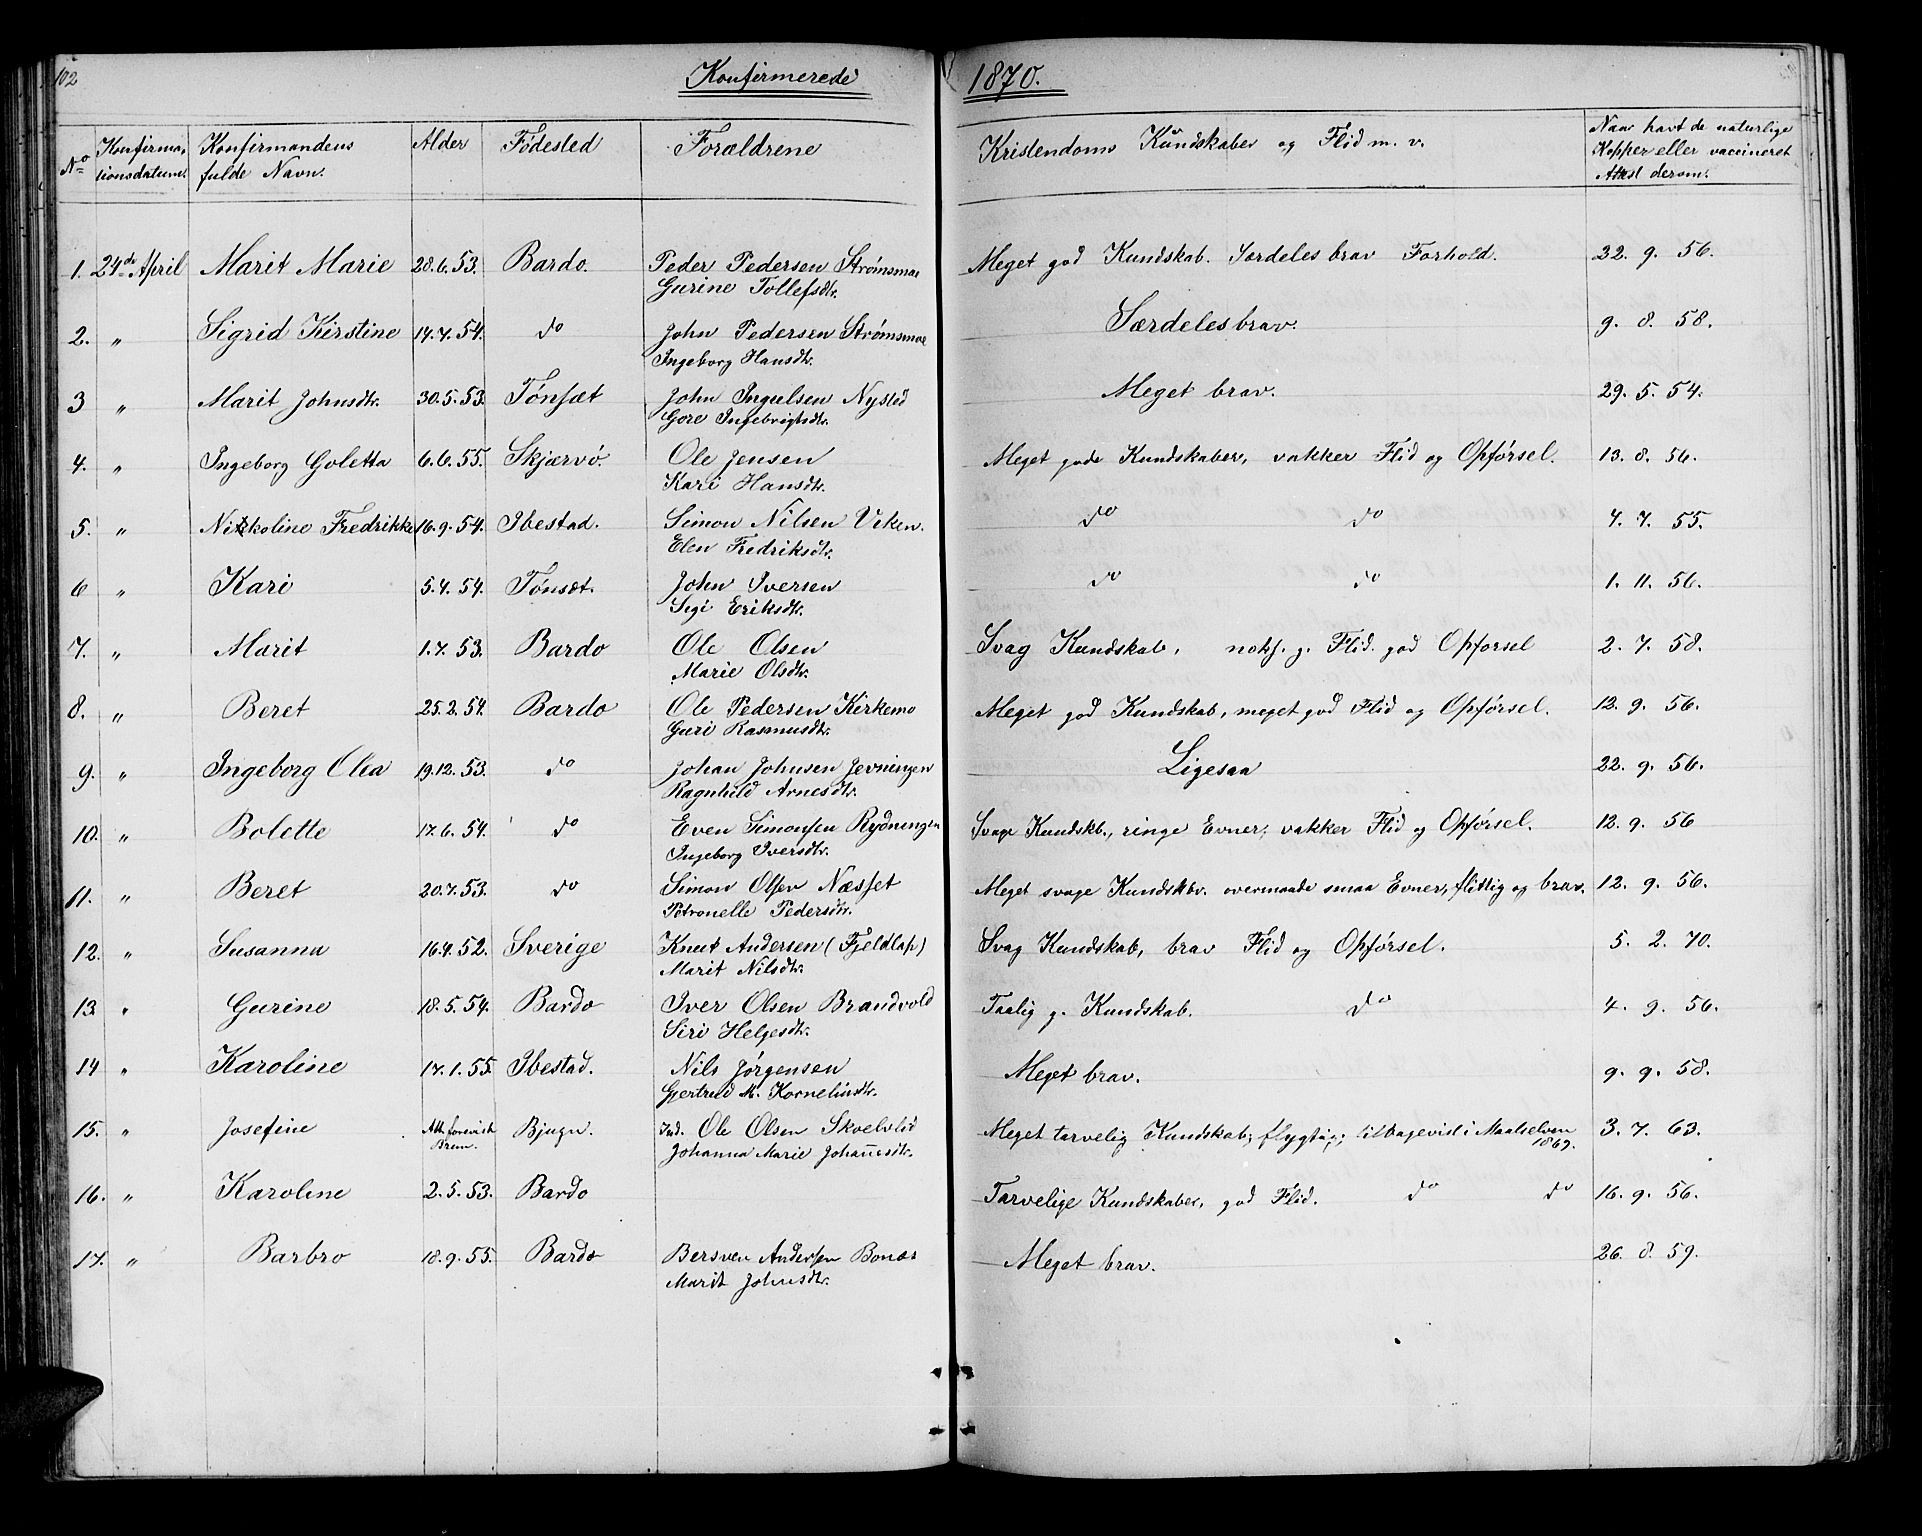 102
Konfirmerede 1870.
No Konfirmationsdatum. Konfirmandens fulde Navn. Alder Fødested Forældrene Kristendoms Kundskaber og Flid m. v. Naar havt de naturlige Kopper eller vaccineret Attest derom.
1. 24de April Marit Marie 28.6.53. Bardo. Peder Pedersen Strømsmoe Meget god Kundskab. Særdeles brav Forhold. 22. 9. 56.
Gurine Tollefsdtr.
2. " Sigrid Kirstine 14.7.54. do John Pedersen Strømsmoe Særdeles brav. 9. 8. 58.
Ingeborg Hansdtr.
3 " Marit Johnsdtr. 30.5.53. Tønsæt John Ingulsen Nysted Meget brav. 29. 5. 54.
Gore Ingebrigtsdtr.
4. " Ingeborg Goletta 6.6.55. Skjærvø. Ole Jensen Meget gode Kundskaber, vakker Flid og Opførsel. 13. 8. 56.
Kari Hansdtr.
5. " Nikoline Fredrikke 16.9.54. Ibestad. Simon Nilsen Viken. do do 4. 7. 55.
Elen Fredriksdtr.
6 " Kari 5.4.54. Tønsæt. John Iversen do do 1. 11. 56.
Sigi Eriksdtr.
7. " Marit 1.7.53. Bardo Ole Olsen Svag Kundskab, noks. g. Flid. god Opførsel 2. 7. 58.
Marie Olsdtr.
8. " Beret 25.2.54. Bardo Ole Pedersen Kirkemo Meget god Kundskab, meget god Flid og Opførsel. 12. 9. 56.
Guri Rasmusdtr.
9. " Ingeborg Olea 19.12.53. do Johan Johnsen Jevningen Ligesaa 22. 9. 56.
Ragnhild Arnesdtr.
10. " Bolette 17.6.54. do Even Simonsen Rydningen Svage Kundskb., ringe Evner, vakker Flid og Opførsel. 12. 9. 56
Ingeborg Iversdtr.
11. " Beret 20.7.53. do Simon Olsen Næsset Meget svage Kundskbr. overmaade smaa Evner, flittig og brav. 12. 9. 56.
Petronelle Pedersdtr.
12. " Susanna 16.4.52. Sverige Knut Andersen (Fjeldlap) Svag Kundskab, brav Flid og Opførsel. 5. 2. 70.
Marit Nilsdtr.
13. " Gurine 18.5.54. Bardo Iver Olsen Brandvold Taalig g. Kundskab. do 4. 9. 56.
Siri Helgesdtr.
14 " Karoline 17.1.55. Ibestad. Nils Jørgensen Meget brav. 9. 9. 58.
Gjertrud M. Kornelinsdtr.
15. " Josefine Att. forevist Brun. Bjugn. Ind. Ole Olsen Skoelvlid Meget tarvelig Kundskab; flygtig; tilbagevist i Maalselven 1869. 3. 7. 63.
Johanna Marie Johan̄esdtr.
16. " Karoline 2.5.53. Bardo Tarvelige Kundskaber, god Flid. do do 16. 9. 56.
17. " Barbro 18.9.55. Bardo Bersven Andersen Bonæs Meget brav. 26. 8. 59.
Marit Johnsdtr.